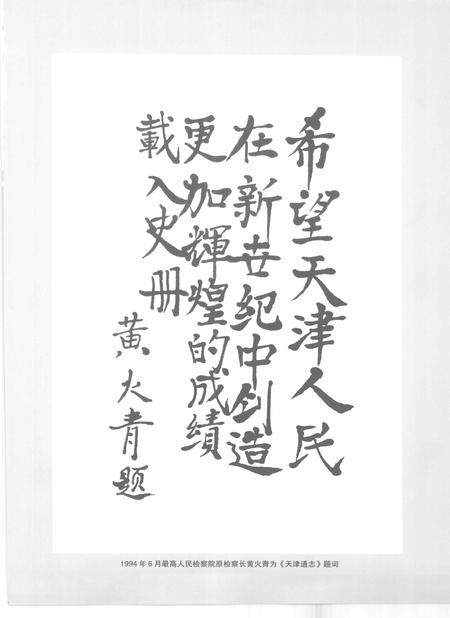 希望天津人民
在新世纪中创造
更加輝煌的成績
載入史册
黄火青题
1994年6月最高人民检察院原检察长黄火青为《天津通志》题词